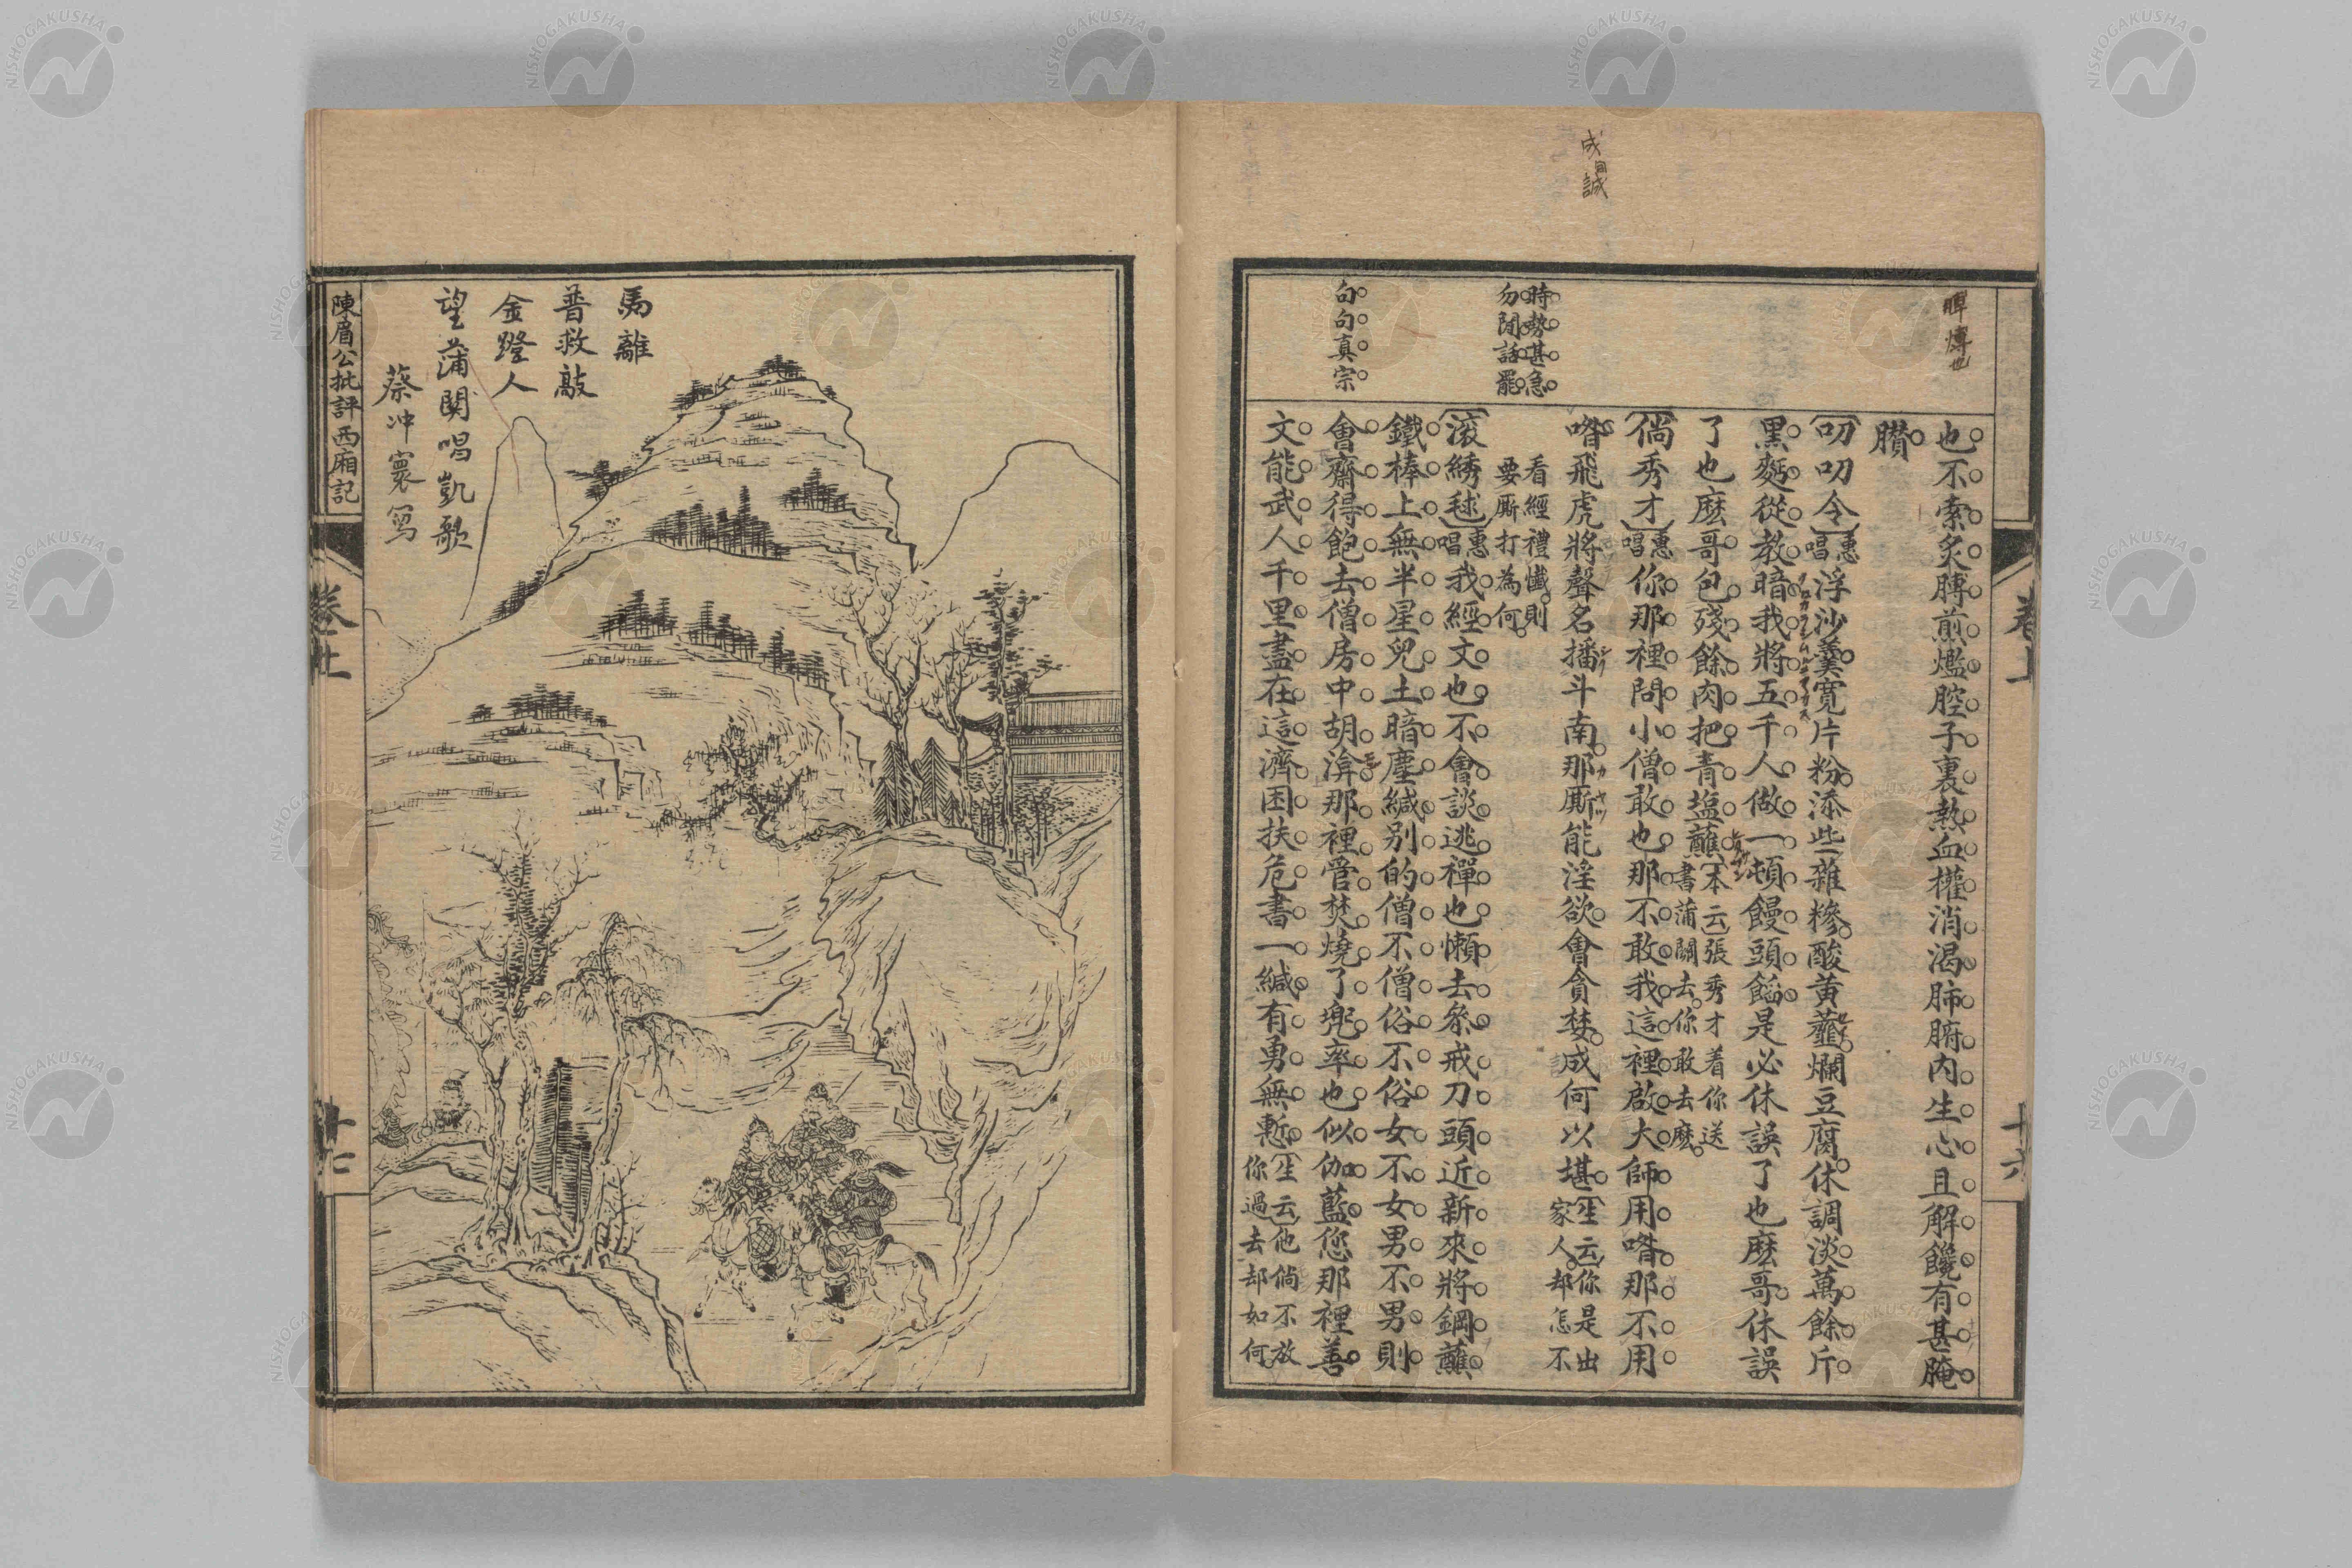 成同誠
脾燀也
時勢甚急
勿閒話罷
句句真宗
卷上
十六
也不索炙膊煎爁腔子裏熱血權消渴肺腑内生心且解饞有甚腌
臢
〔叨叨令〕惠唱浮沙羹寬片粉添些雜糝酸黄虀爛豆腐休調淡萬餘斤
黑麪從教暗我將五千人做一頓饅頭餡是必休誤了也麽哥休誤
了也麽哥包殘餘肉把青塩蘸〔本云〕張秀才着你送書蒲關去你敢去麽
〔倘秀才〕惠唱你那裡問小僧敢也那不敢我這裡啟大師用喒那不用
喒飛虎將聲名播斗南那厮能淫欲會貪婪成何以堪〔生云〕你是出家人却怎不
看經禮懺則要厮打為何
〔滚綉毬〕惠唱我經文也不會談逃禪也懶去叅戒刀頭近新來將鋼蘸
鐵棒上無半星兒土暗塵緘别的僧不僧俗不俗女不女男不男則
會齋得飽去僧房中胡渰那裡管焚燒了兜率也似伽藍您那裡善
文能武人千里盡在這濟困扶危書一緘有勇無慙〔生云〕他倘不放你過去却如何
馬離
普救敲
金蹬人
望蒲関唱凱歌
蔡冲寰寫
陳眉公批評西廂記
卷上
十七
NISHOGAKUSHA